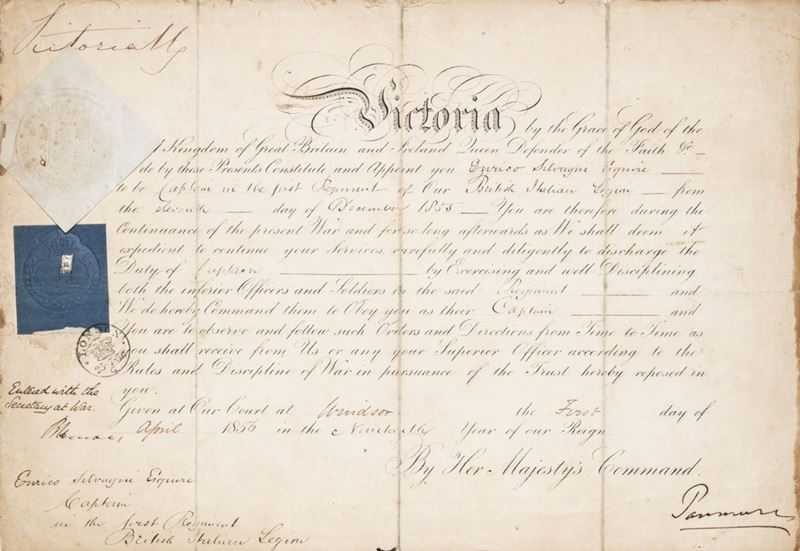 Victoria R
Victoria by the Grace of God of the
Kingdom of Great Britain and Ireland Queen Defender of the Faith &c —
do by these Presents Constitute and Appoint you Enrico Silvagni Esquire —
to be Captain in the first Regiment of Our British Italian Legion — from
the — day of December 1855 — You are therefore during the
Continuance of the present War and for so long afterwards as We shall deem it
expedient to continue your Services, carefully and diligently to discharge the
Duty of Captain — by Exercising and well Disciplining
both the inferior Officers and Soldiers in the said Regiment — and
We do hereby Command them to Obey you as their Captain — and
You are to observe and follow such Orders and Directions from Time to Time as
you shall receive from Us or any your Superior Officer according to the
Rules and Discipline of War in pursuance of the Trust hereby reposed in
you.
Given at Our Court at Windsor the First day of
April 1856 in the Nineteenth Year of our Reign
By Her Majesty's Command.
Panmure
LONDON
Entered with the
Secretary at War.
Enrico Silvagni Esquire
Captain
in the first Regiment
British Italian Legion